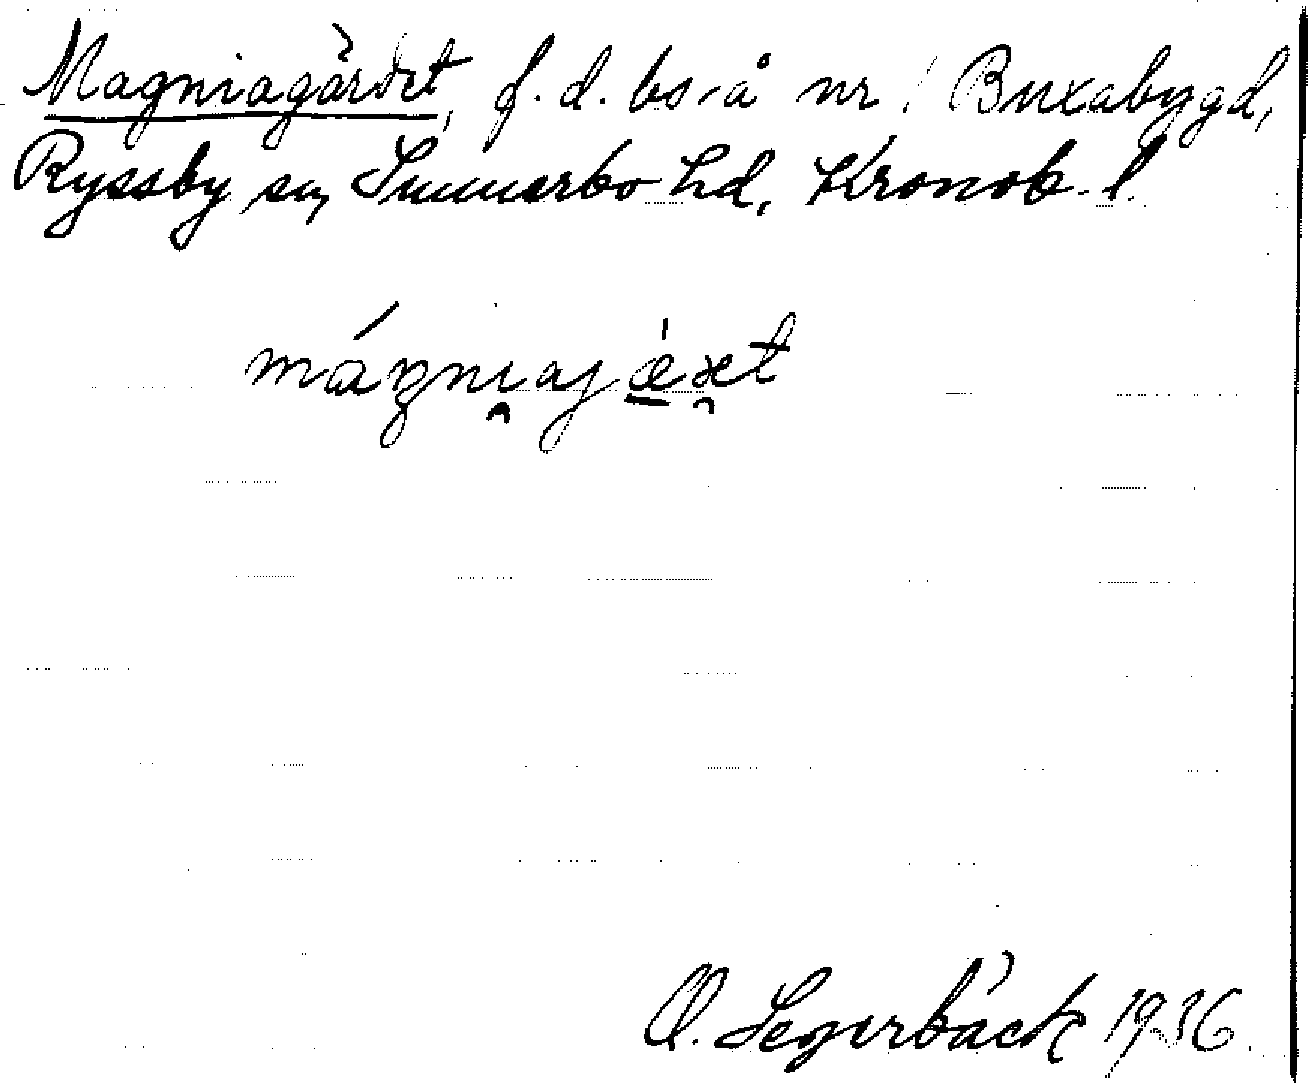 Magniagärdet, f. d. bs. å nr 1 Buxabygd,
Ryssby sn, Sunnerbo hd, Kronob. l.
O. Segerbäck 1936.